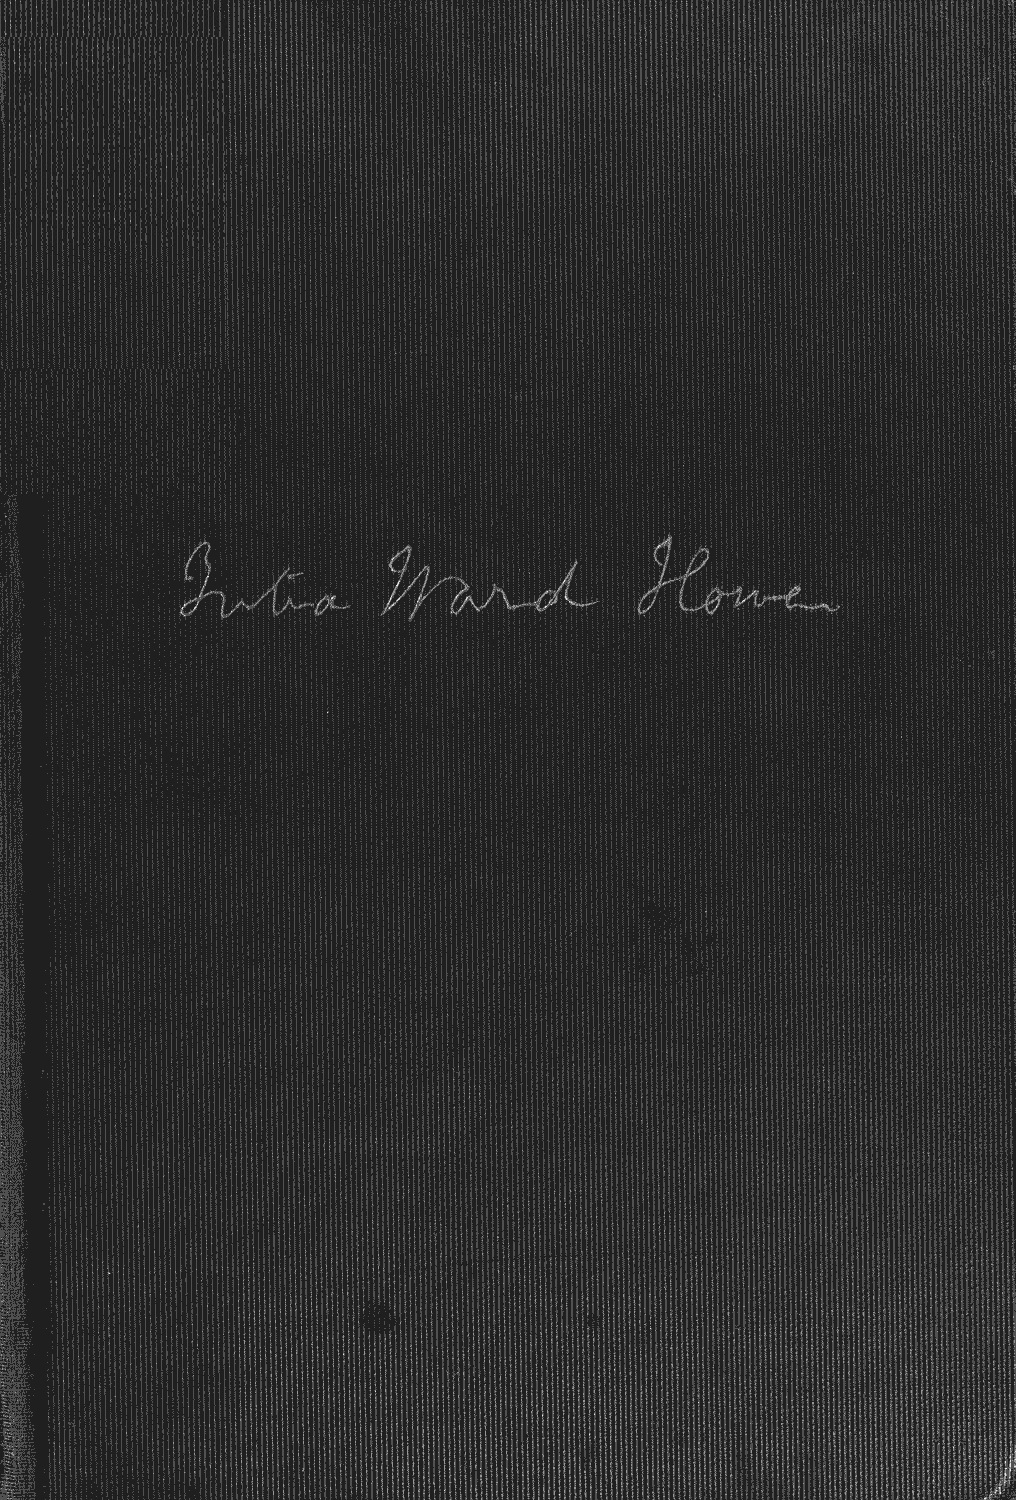 Julia Ward Howe